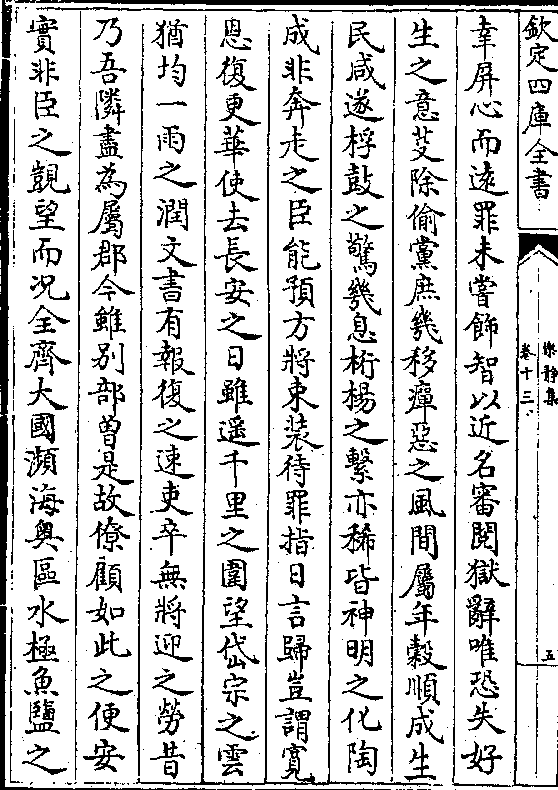 欽定四庫全書
樂静集
卷十三
五
幸屏心而逺罪未嘗飾智以近名審閲獄辭唯恐失好
生之意芟除偷黨庶幾移癉惡之風間屬年穀順成生
民咸遂桴鼓之驚幾息桁楊之繫亦稀皆神明之化陶
成非奔走之臣能預方將束装待罪指日言歸豈謂寛
恩復更華使去長安之日雖遥千里之圍望岱宗之雲
猶均一雨之潤文書有報復之速吏卒無將迎之勞昔
乃吾隣盡為屬郡今雖别部曽是故僚顧如此之便安
實非臣之覬望而况全齊大國瀕海奥區水極魚鹽之